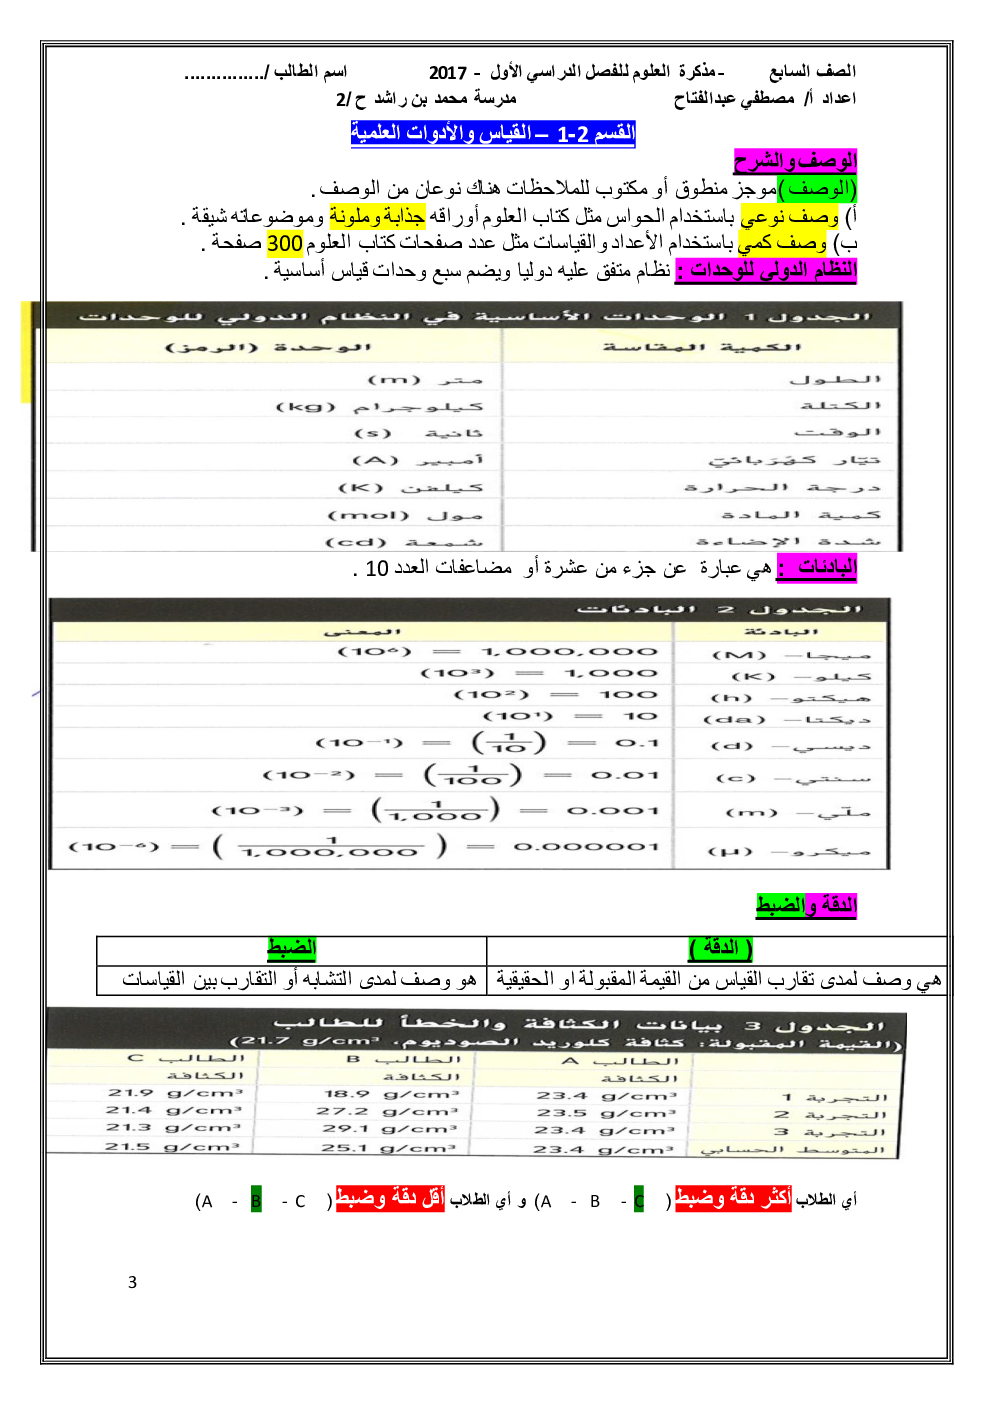 الصف السابع - مذكرة العلوم للفصل الدراسي الأول - 2017 اسم الطالب /...............
اعداد أ/ مصطفي عبدالفتاح مدرسة محمد بن راشد ح /2
القسم 2-1 – القياس والأدوات العلمية
الوصف والشرح
(الوصف )موجز منطوق أو مكتوب للملاحظات هناك نوعان من الوصف .
أ) وصف نوعي باستخدام الحواس مثل كتاب العلوم أوراقه جذابة وملونة وموضوعاته شيقة .
ب) وصف كمي باستخدام الأعداد والقياسات مثل عدد صفحات كتاب العلوم 300 صفحة .
النظام الدولي للوحدات : نظام متفق عليه دوليا ويضم سبع وحدات قياس أساسية .
الجدول 1 الوحدات الأساسية في النظام الدولي للوحدات
الكمية المقاسة الوحدة (الرمز)
الطول متر (m)
الكتلة كيلوجرام (kg)
الوقت ثانية (s)
تيّار كهْرَبائيّ أمبير (A)
درجة الحرارة كيلفن (K)
كمية المادة مول (mol)
شدة الإضاءة شمعة (cd)
البادئات : هي عبارة عن جزء من عشرة أو مضاعفات العدد 10 .
الجدول 2 البادئات
البادئة المعنى
ميجا– (M) 1,000,000 = (10⁶)
كيلو– (K) 1,000 = (10³)
هيكتو– (h) 100 = (10²)
ديكتا– (da) 10 = (10¹)
ديسي– (d) 0.1 = (1/10) = (10⁻¹)
سنتي– (c) 0.01 = (1/100) = (10⁻²)
ملّي– (m) 0.001 = (1/1,000) = (10⁻³)
ميكرو– (µ) 0.000001 = (1/1,000,000) = (10⁻⁶)
الدقة والضبط
( الدقة ) الضبط
هي وصف لمدى تقارب القياس من القيمة المقبولة او الحقيقية هو وصف لمدى التشابه أو التقارب بين القياسات
الجدول 3 بيانات الكثافة والخطأ للطالب
(القيمة المقبولة: كثافة كلوريد الصوديوم، 21.7 g/cm³)
الطالب A الطالب B الطالب C
الكثافة الكثافة الكثافة
التجربة 1 23.4 g/cm³ 18.9 g/cm³ 21.9 g/cm³
التجربة 2 23.5 g/cm³ 27.2 g/cm³ 21.4 g/cm³
التجربة 3 23.4 g/cm³ 29.1 g/cm³ 21.3 g/cm³
المتوسط الحسابي 23.4 g/cm³ 25.1 g/cm³ 21.5 g/cm³
أي الطلاب أكثر دقة وضبط ( A - B - C) و أي الطلاب أقل دقة وضبط ( A - B - C)
3